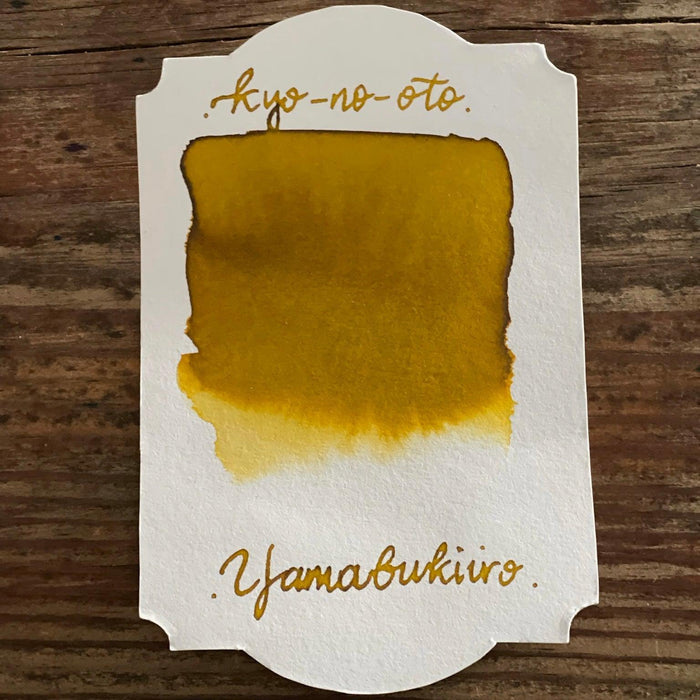 . kyo-no-oto.
. Yamabukiiro .